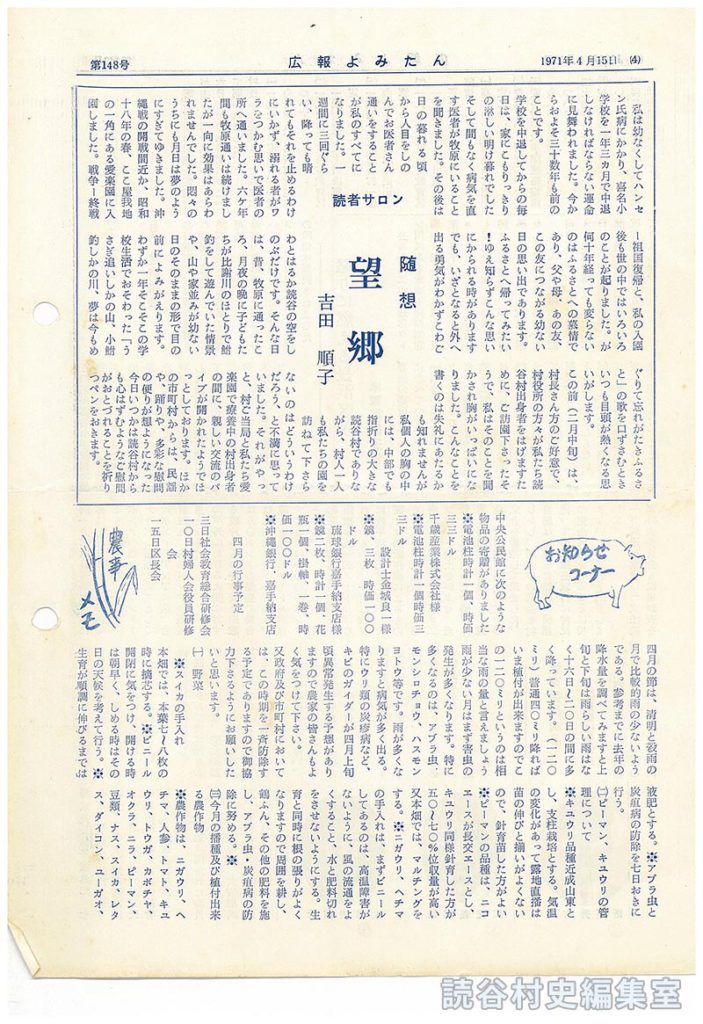 第148号
広報よみたん
1971年4月15日 (4)
読者サロン
随想
望郷
吉田順子
私は幼なくしてハンセ
ン氏病にかかり、喜名小
学校を一年三カ月で中退
しなければならない運命
に見舞われました。今か
らおよそ三十数年も前の
ことです。
学校を中退してからの毎
日は、家にこもりっきり
の淋しい明け暮れでした
そして間もなく病気を直
す医者が牧原にいること
を聞きました。その後は
日の暮れる頃
から人目をしの
んでお医者さん
通いをすること
が私のすべてに
なりました。一
週間に三回ぐら
い、降っても晴
れてもそれを止めるわけ
にいかず、溺れる者がワ
ラをつかむ思いで医者の
所へ通いました。六ケ年
間も牧原通いは続けまし
たが一向に効果はあらわ
れませんでした。悶々の
うちにも月日は夢のよう
にすぎてゆきました。沖
縄戦の開戦間近か、昭和
十八年の春、ここ屋我地
の一角にある愛楽園に入
園しました。戦争ー終戦
ー祖国復帰と、私の入園
後も世の中ではいろいろ
のことが起りました。が
何十年経っても変らない
のはふるさとへの慕情で
あり、父や母、あの友、
この友につながる幼ない
日の思い出であります。
ふるさとへ帰ってみたい
!ゆえ知らずこんな思い
にかられる時があります
でも、いざとなると外へ
出る勇気がわかずこわご
わとはるか読谷の空をし
のぶだけです。そんな日
は、昔、牧原に通ったこ
ろ、月夜の晩に子どもた
ちが比謝川のほとりで鮒
釣をして遊んでいた情景
や、山や家並みが幼ない
日のそのままの形で目の
前によみがえります。
わずか一年そこその学
校生活でおそわった「う
さぎ追いしかの山、小鮒
釣しかの川、夢は今もめ
ぐりて忘れがたきふるさ
と」の歌を口ずさむとき
いつも目頭が熱くなる思
いがします。
この前(二月中旬)は、
村長さん方のご好意で、
村役所の方々が私たち読
谷村出身者をはげますた
めに、ご訪園下さったそ
うで、私はそのことを聞
かされ胸がいっぱいにな
りました。こんなことを
書くのは失礼にあたるか
も知れませんが
私個人の胸の中
には、中部でも
指折りの大きな
読谷村でありな
がら、村人一人
も私たちの園を
訪ねて下さら
ないのはどういうわけ
だろう、と不満に思って
いました。それがやっ
と、村ご当局と私たち愛
楽園で療養中の村出身者
の間に、親しい交流のパ
イプが開かれたようでほ
っとしております。ほか
の市町村からは、民謡
や、踊りや、多彩な慰問
の便りが想ようになった
今日いつかは読谷村から
も心はずむようなご慰問
がおとづれることを祈り
つペンをおきます。
お知らせ
コーナー
中央公民館に次のような
物品の寄贈がありました
※電池柱時計一個、時価
三三ドル
千歳産業株式会社様
※電池柱時計一個時価三
三ドル
設計士金城良一様
※鏡、三枚 時価一〇〇
ドル
琉球銀行嘉手納支店様
※鏡二枚、時計一個、花
瓶一個、掛軸、一巻、時
価一〇〇ドル
沖縄銀行、嘉手納支店
四月の行事予定
三日社会教育総合研修会
一〇日村婦人会役員研修
会
一五日区長会
農事
メモ
四月の節は、清明と穀雨の
月で比較的雨の少ないよう
である。参考までに去年の
降水量を調べてみますと上
旬と下旬は雨らしい雨はな
く十六日〜二〇日の間に多
く降っています。(一二〇
ミリ)普通四〇ミリ降れば
いま植付が出来ますのでこ
の一二〇ミリというのは相
当な雨の量と言えましょう
雨が少ない月はまず害虫の
発生が多くなります。特に
多くなるのは、アブラ虫、
モンシロチョウ、ハスモン
ヨトウ等です。雨が多くな
りますと病気が多く出る。
特にウリ類の炭疽病など、
キビのガイダーが四月上旬
頃異常発生する予想があり
ますので農家の皆さんもよ
く気をつけて下さい。
又政府及び市町村において
は、この時期を一斉防除す
る予定でありますので御協
力下さるようにお願いした
いと思います。
(一) 野菜
※スイカの手入れ
本畑では、本葉七〜八枚の
時に摘志する。※ビニール
開閉に気をつけ、開ける時
は朝早く、しめる時はその
日の天候を考えて行う。※
生育が順調に伸びるまでは
液肥とする。※アブラ虫と
炭疽病の防除を七日おきに
行う。
(二)ピーマン、キュウリの管
理について
※キュウリ品種近成山東と
し、支柱栽培とする。気温
の変化があって露地直播は
苗の伸びと揃いがよくない
ので、針育苗した方がよい
※ピーマンの品種は、ニコ
エースが長交エースとし、
キュウリ同様針育した方が
五〇〜七〇%位収量が高い
又本畑では、マルチングを
する。※ニガウリ、ヘチマ
の手入れは、まずビニール
してあるのは、高温障害が
ないように、風の流通をよ
くすること、水と肥料切れ
をさせないようにする。生
育と同時に根の張りがよく
なりますので周囲を耕し、
鶏ふん、その他の肥料を施
し、アブラ虫・炭疽病の防
除に努める。※
(三)今月の播種及び植付出来
る農作物
※農作物は、ニガウリ、ヘ
チマ、人参、トマト、キュ
ウリ、トウガ、カボチャ、
オクラ、ニラ、ピーマン、
豆類、ナス、スイカ、レタ
ス、ダイコン、ユーガオ、
読谷村史編集室